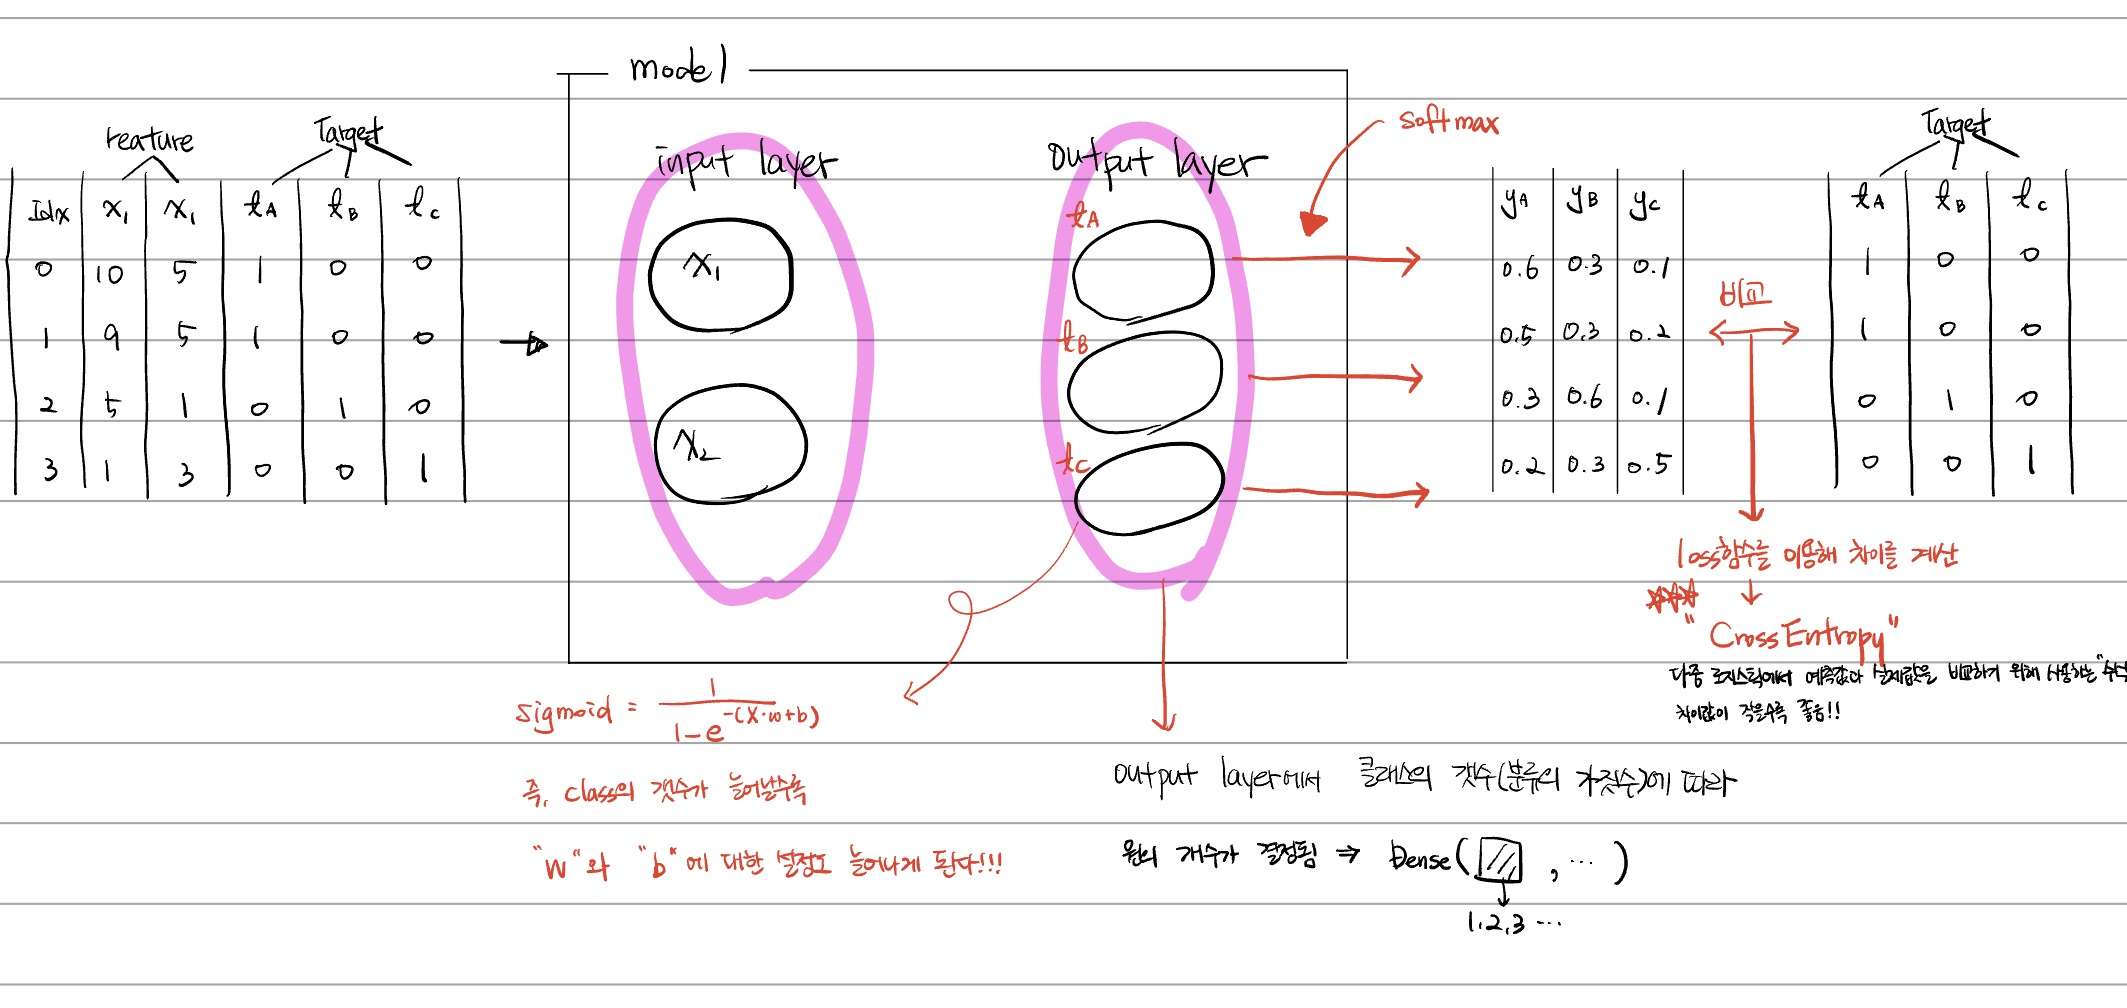 model
feature
Target
Idx x₁ x₁ tA tB tC
0 10 5 1 0 0
1 9 5 1 0 0
2 5 1 0 1 0
3 1 3 0 0 1
input layer
x₁
x₂
output layer
tA
tB
tC
softmax
yA yB yC
0.6 0.3 0.1
0.5 0.3 0.2
0.3 0.6 0.1
0.2 0.3 0.5
비교
Target
tA tB tC
1 0 0
1 0 0
0 1 0
0 0 1
loss함수를 이용해 차이를 계산
"Cross Entropy"
다중 로지스틱에서 예측값과 실제값을 비교하기 위해 사용하는 "수식
차이값이 작을수록 좋음!!
sigmoid = 1 / 1-e^-(x·w+b)
즉, class의 갯수가 늘어날수록
"w"와 "b"에 대한 설정도 늘어나게 된다!!!
output layer에서 클래스의 갯수(분류의 가짓수)에 따라
원의 개수가 결정됨 ⇒ Dense( , ··· )
1,2,3 ···